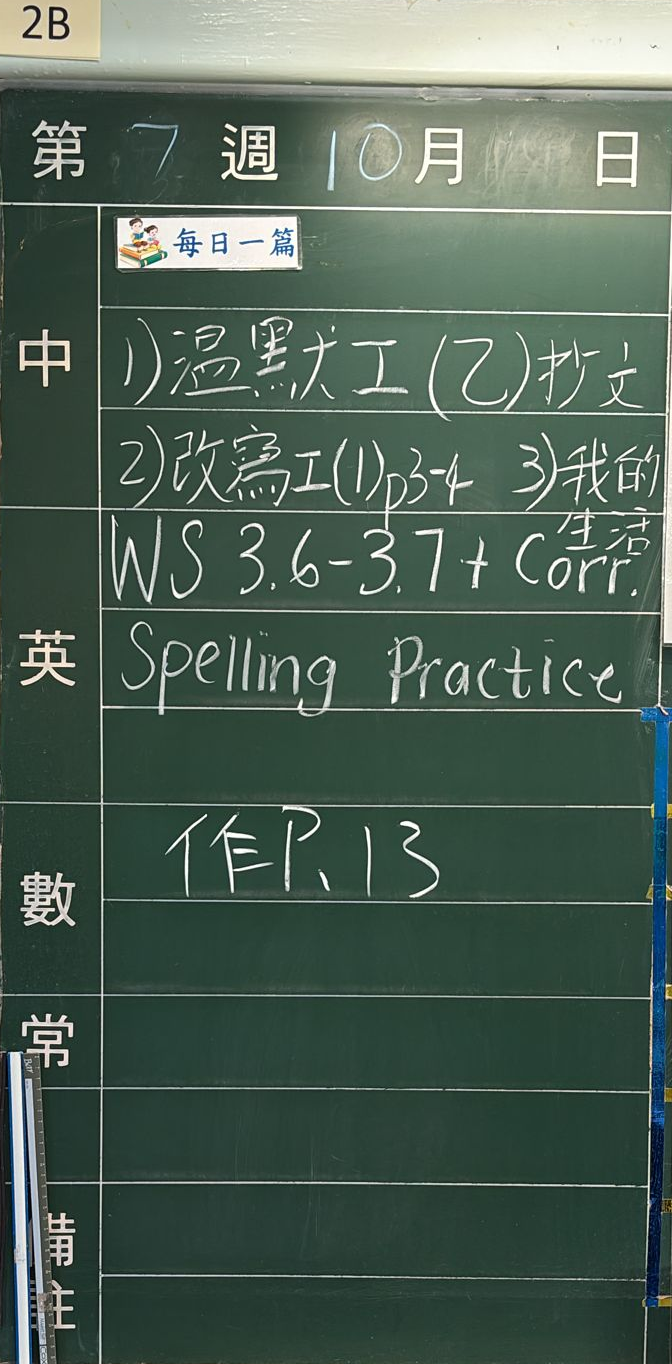 2B
第 7 週 10 月 日
每日一篇
中
1)溫默工(乙)抄文
2)改寫工(1)p3-4 3)我的
生活
WS 3.6-3.7 + Corr.
英
Spelling Practice
作P.13
數
常
備註